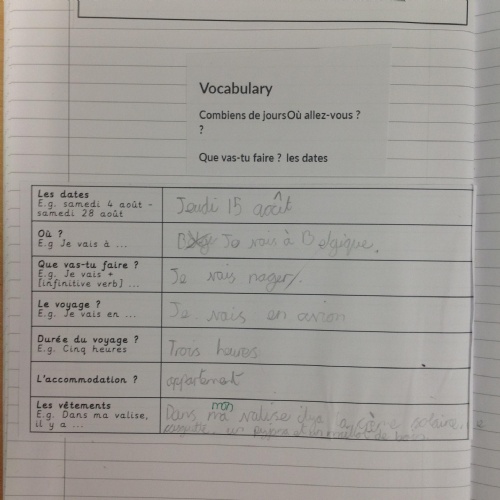 Vocabulary
Combiens de joursOù allez-vous ?
?
Que vas-tu faire ? les dates
Les dates
E.g. samedi 4 août -
samedi 28 août
Jeudi 15 août
Où ?
E.g Je vais à ...
Je vais à Belgique.
Que vas-tu faire ?
E.g. Je vais +
[infinitive verb] ...
Je vais nager.
Le voyage ?
E.g. Je vais en ...
Je vais en avion
Durée du voyage ?
E.g. Cinq heures
Trois heures
L'accommodation ?
appartement
Les vêtements
E.g. Dans ma valise,
il y a ...
mon
Dans ma valise il y a la crème solaire,
un pyjama et un maillot de bain